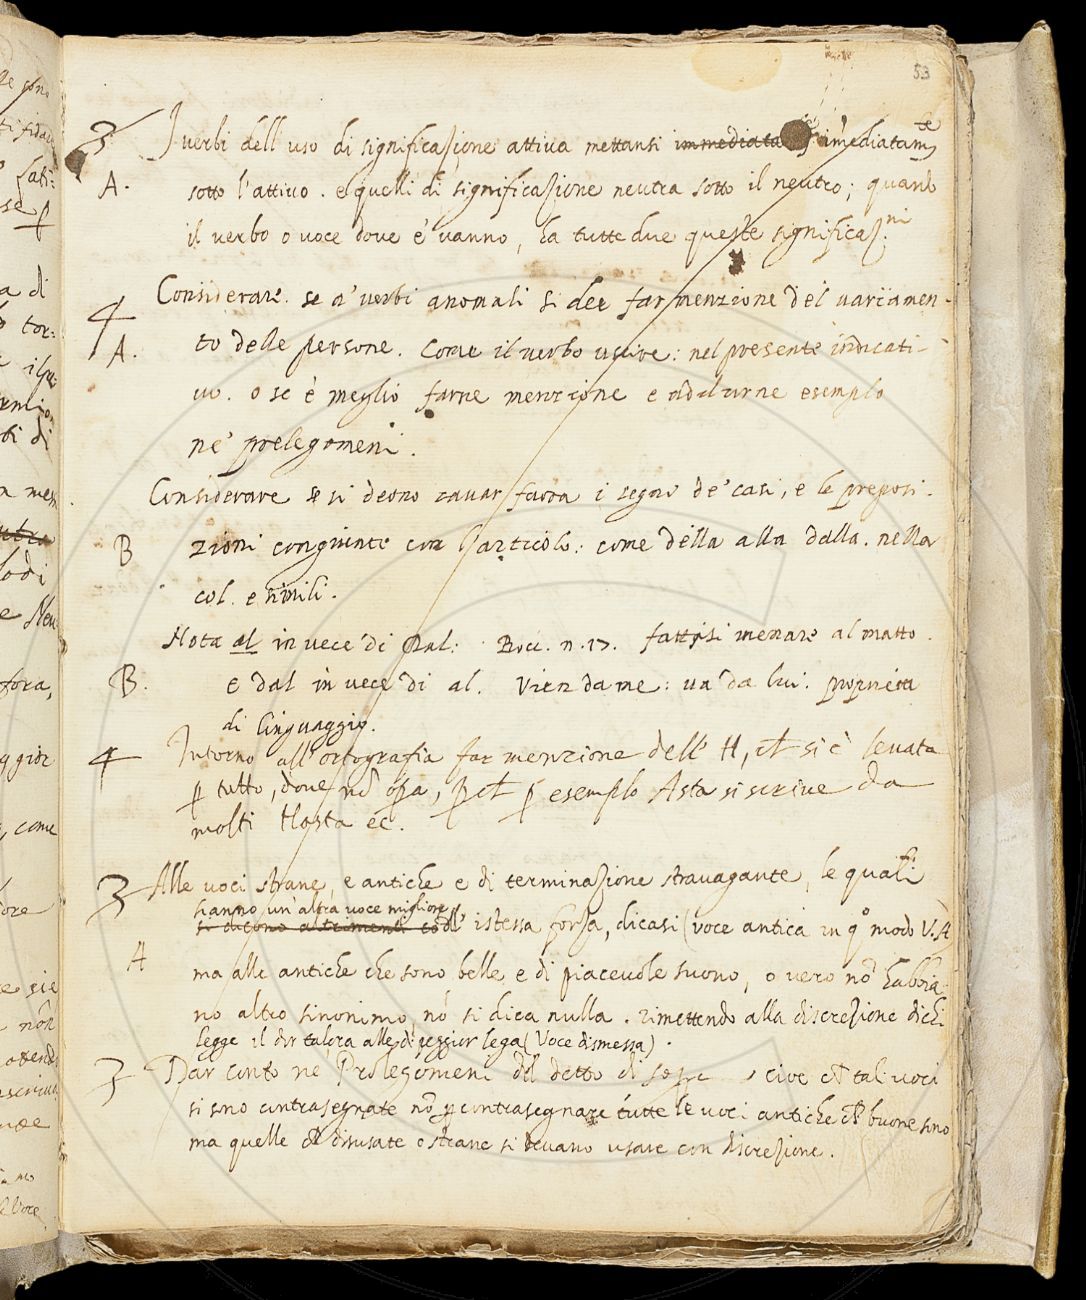 53
3 I verbi dell'uso di significazione attiva mettansi immediata imediatam.te
A. sotto l'attivo. e quelli di significazione neutra sotto il neutro; quando
il verbo o voce dove e' vanno, ha tutte due queste significaz.ni
4 Considerare. se a' verbi anomali si dee far menzione del variamen-
A. to delle persone. Come il verbo uscire: nel presente indicati-
vo. o se è meglio farne menzione e addurne esemplo
ne' prolegomeni.
Considerare se si deono cavar fuora i segni de' casi, e le preposi-
B zioni congiunte con l'articolo: come della alla dalla. nella
col. e simili.
Nota al in vece di Dal. Bocc. n. 17. fattisi menare al matto.
B. e dal in vece di al. Vien da me: va da lui. proprietà
di linguaggio.
4 Intorno all'ortografia far menzione dell'H, ch si è levata
p tutto, dove nō opa, pch p esemplo Asta si scrive da
molti Hasta ec.
3 Alle voci strane, e antiche e di terminazione stravagante, le quali
hanno un'altra voce migliore
si dicono altrimenti coll' istessa forza, dicasi (voce antica in qo modo V.A
A ma alle antiche che sono belle, e di piacevole suono, o vero nō habbia-
no altro sinonimo nō si dica nulla. rimettendo alla discrezione di chi
legge il dir talora alle di peggior lega (Voce dismessa).
3 Dar conto ne' Prolegomeni del detto di sopr cioè ch tal voci
si sono contrasegnate nō p contrasegnare tutte le voci antiche ch buone sono
ma quelle ch disusate o strane si devano usare con discrezione.